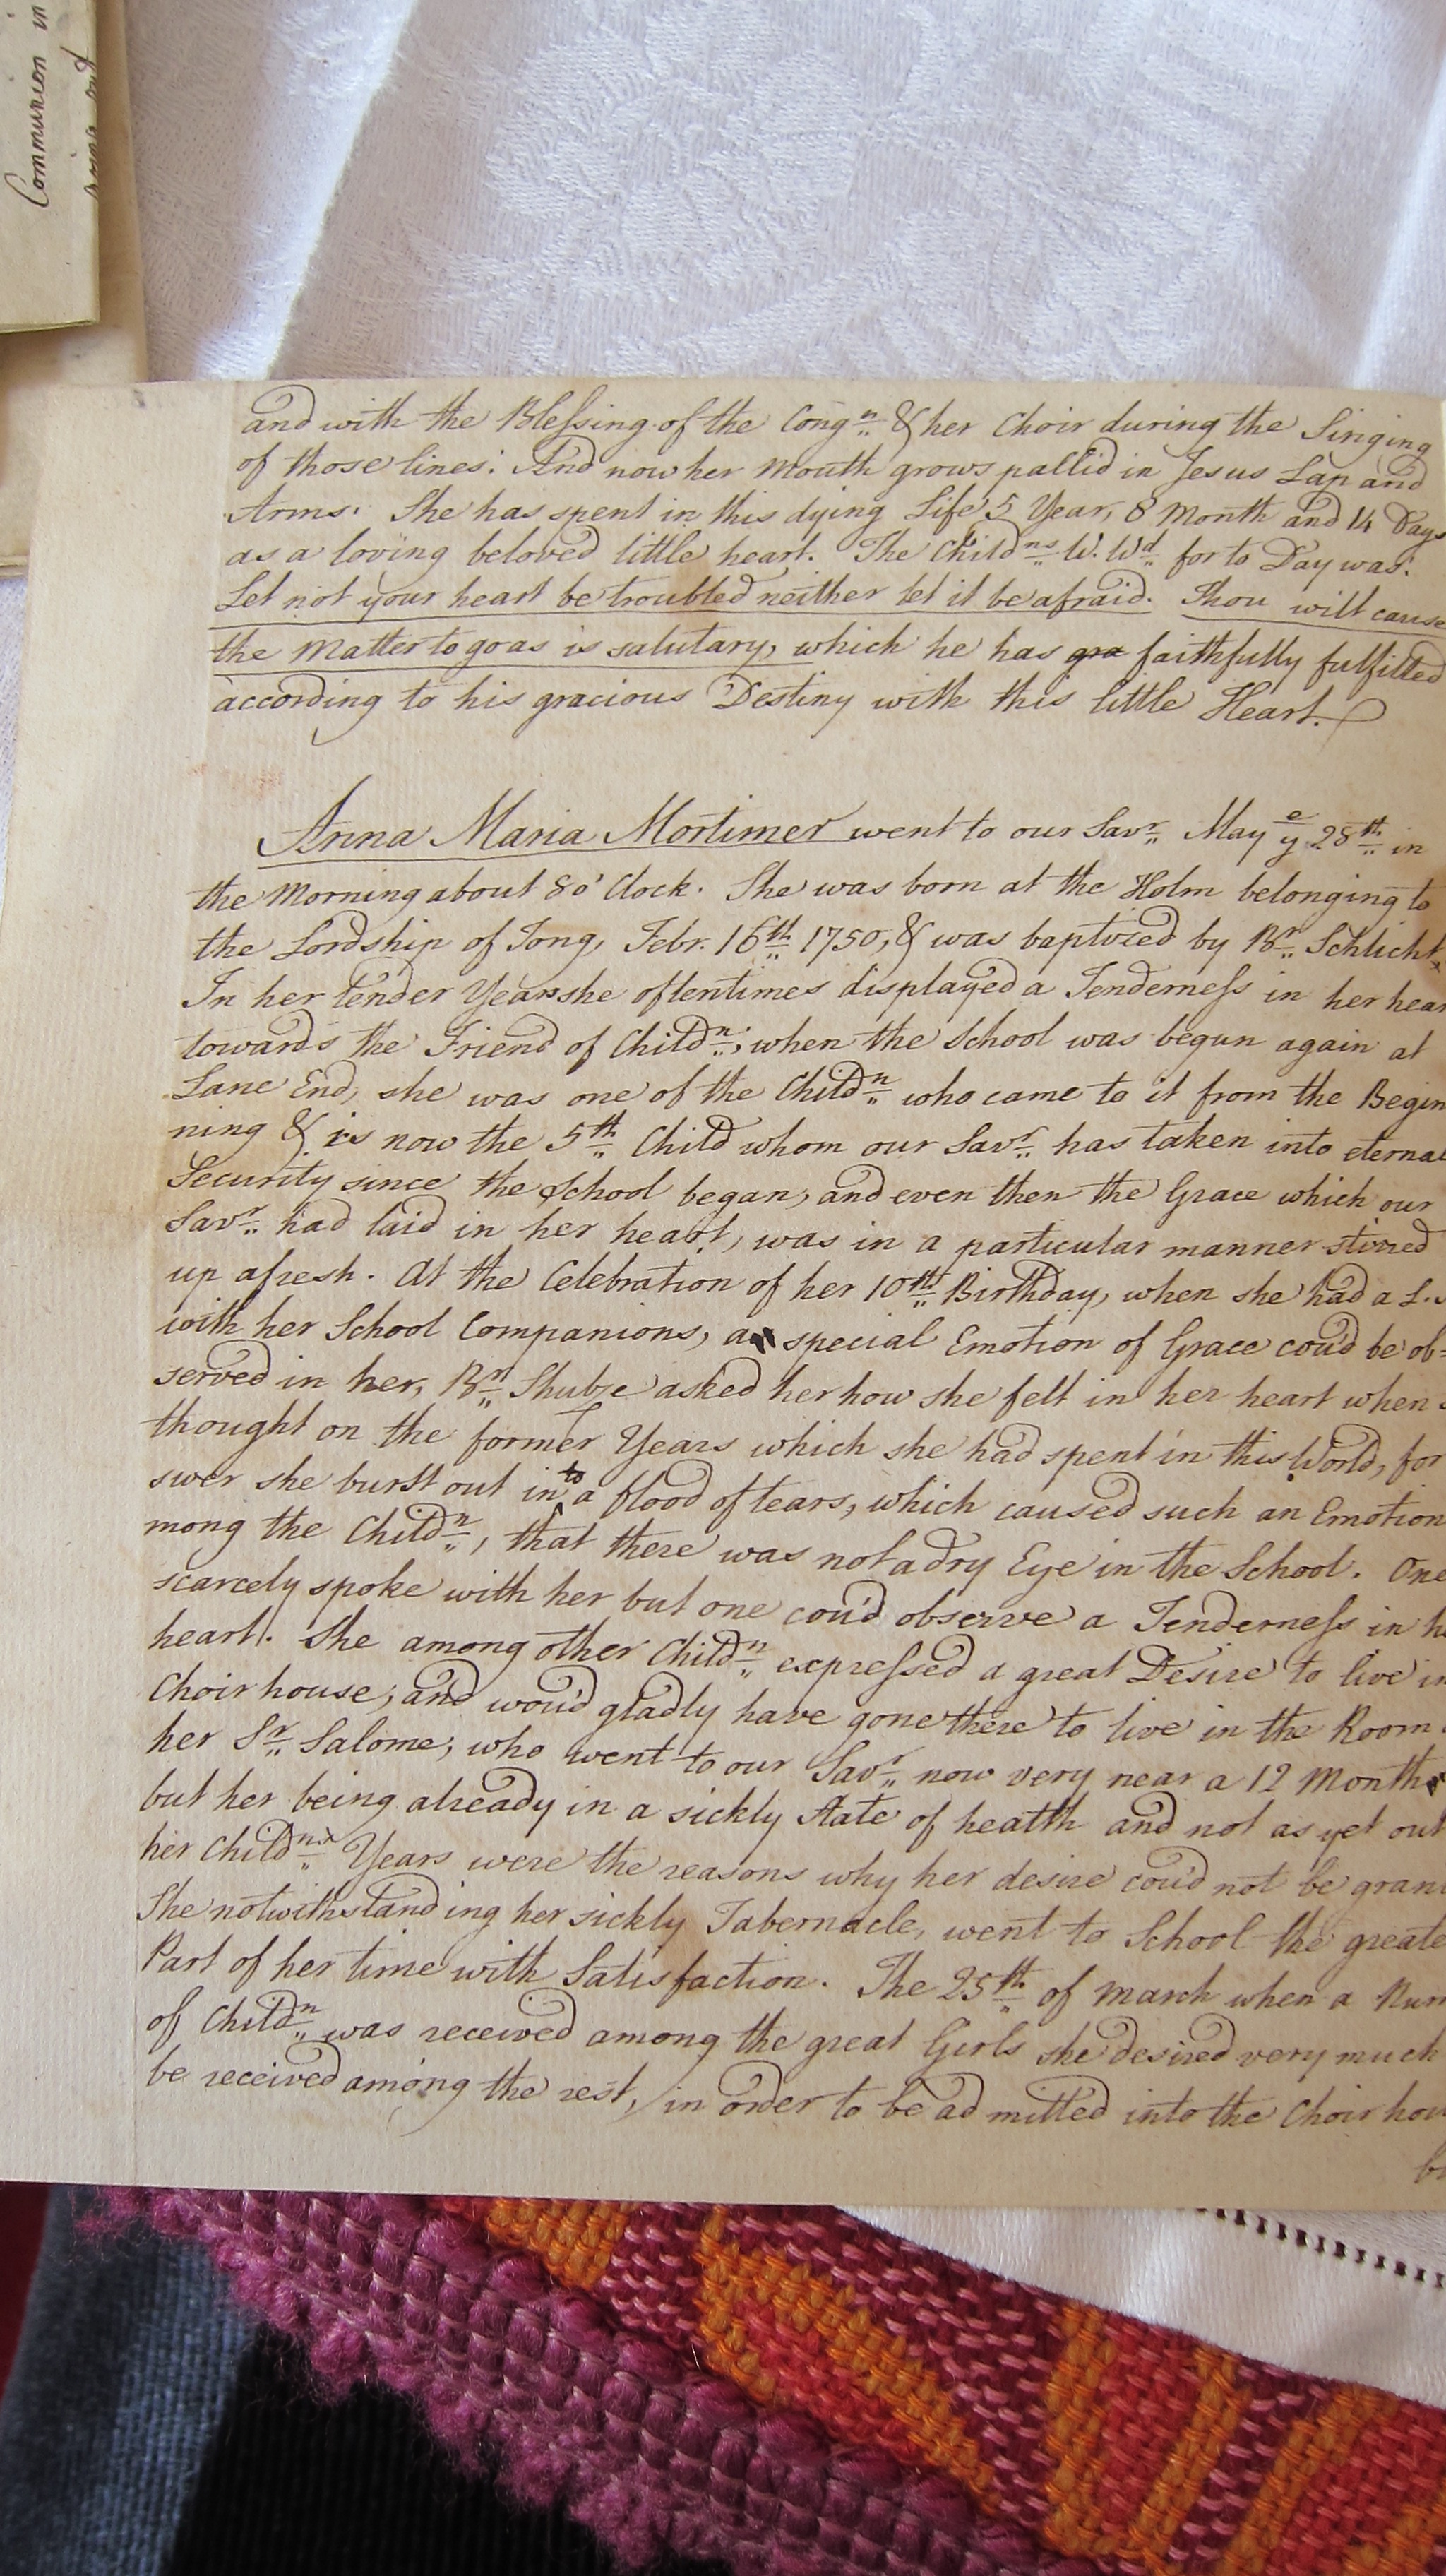 Communion in
and with the Blessing of the Congn. & her Choir during the Singing
of those lines: And now her Mouth grows pallid in Jesus Lap and
Arms. She has spent in this dying Life 5 Year, 8 Month and 14 Days
as a loving beloved little heart. The Childns W. Wd. for to Day was:
Let not your heart be troubled neither let it be afraid. Thou will cause
the Matter to go as is salutary, which he has gra faithfully fulfilled
according to his gracious Destiny with this little Heart.
Anna Maria Mortimer went to our Savr. May ye 28th. in
the Morning about 8 o' Clock. She was born at the Holm belonging to
the Lordship of Tong, Febr. 16th. 1750, & was baptized by Br. Schlicht.
In her tender Years she oftentimes displayed a Tenderness in her hear
towards the Friend of Childn.; when the School was begun again at
Lane End, she was one of the Childn. who came to it from the Begin
ning & is now the 5th. Child whom our Savr. has taken into eternal
Security since the School began, and even then the Grace which our
Savr. had laid in her heart, was in a particular manner stirred
up afresh. At the Celebration of her 10th. Birthday, when she had a L.
with her School Companions, a special Emotion of Grace cou'd be ob=
served in her, Br. Shubze asked her how she felt in her heart when
thought on the former Years which she had spent in this World, for
swer she burst out into a flood of tears, which caused such an Emotion
mong the Childn., that there was not a dry Eye in the School. One
scarcely spoke with her but one cou'd observe a Tenderness in h
heart. She among other Childn. expressed a great Desire to live in
Choir house; and wou'd gladly have gone there to live in the Room
her Sr. Salome, who went to our Savr. now very near a 12 Month
but her being already in a sickly state of health and not as yet out
her Childns. Years were the reasons why her desire cou'd not be gran
She notwithstanding her sickly Tabernacle, went to School the greate
Part of her time with Satisfaction. The 25th. of March when a Num
of Childn. was received among the great Girls she desired very much
be received among the rest, in order to be admitted into the Choir hou